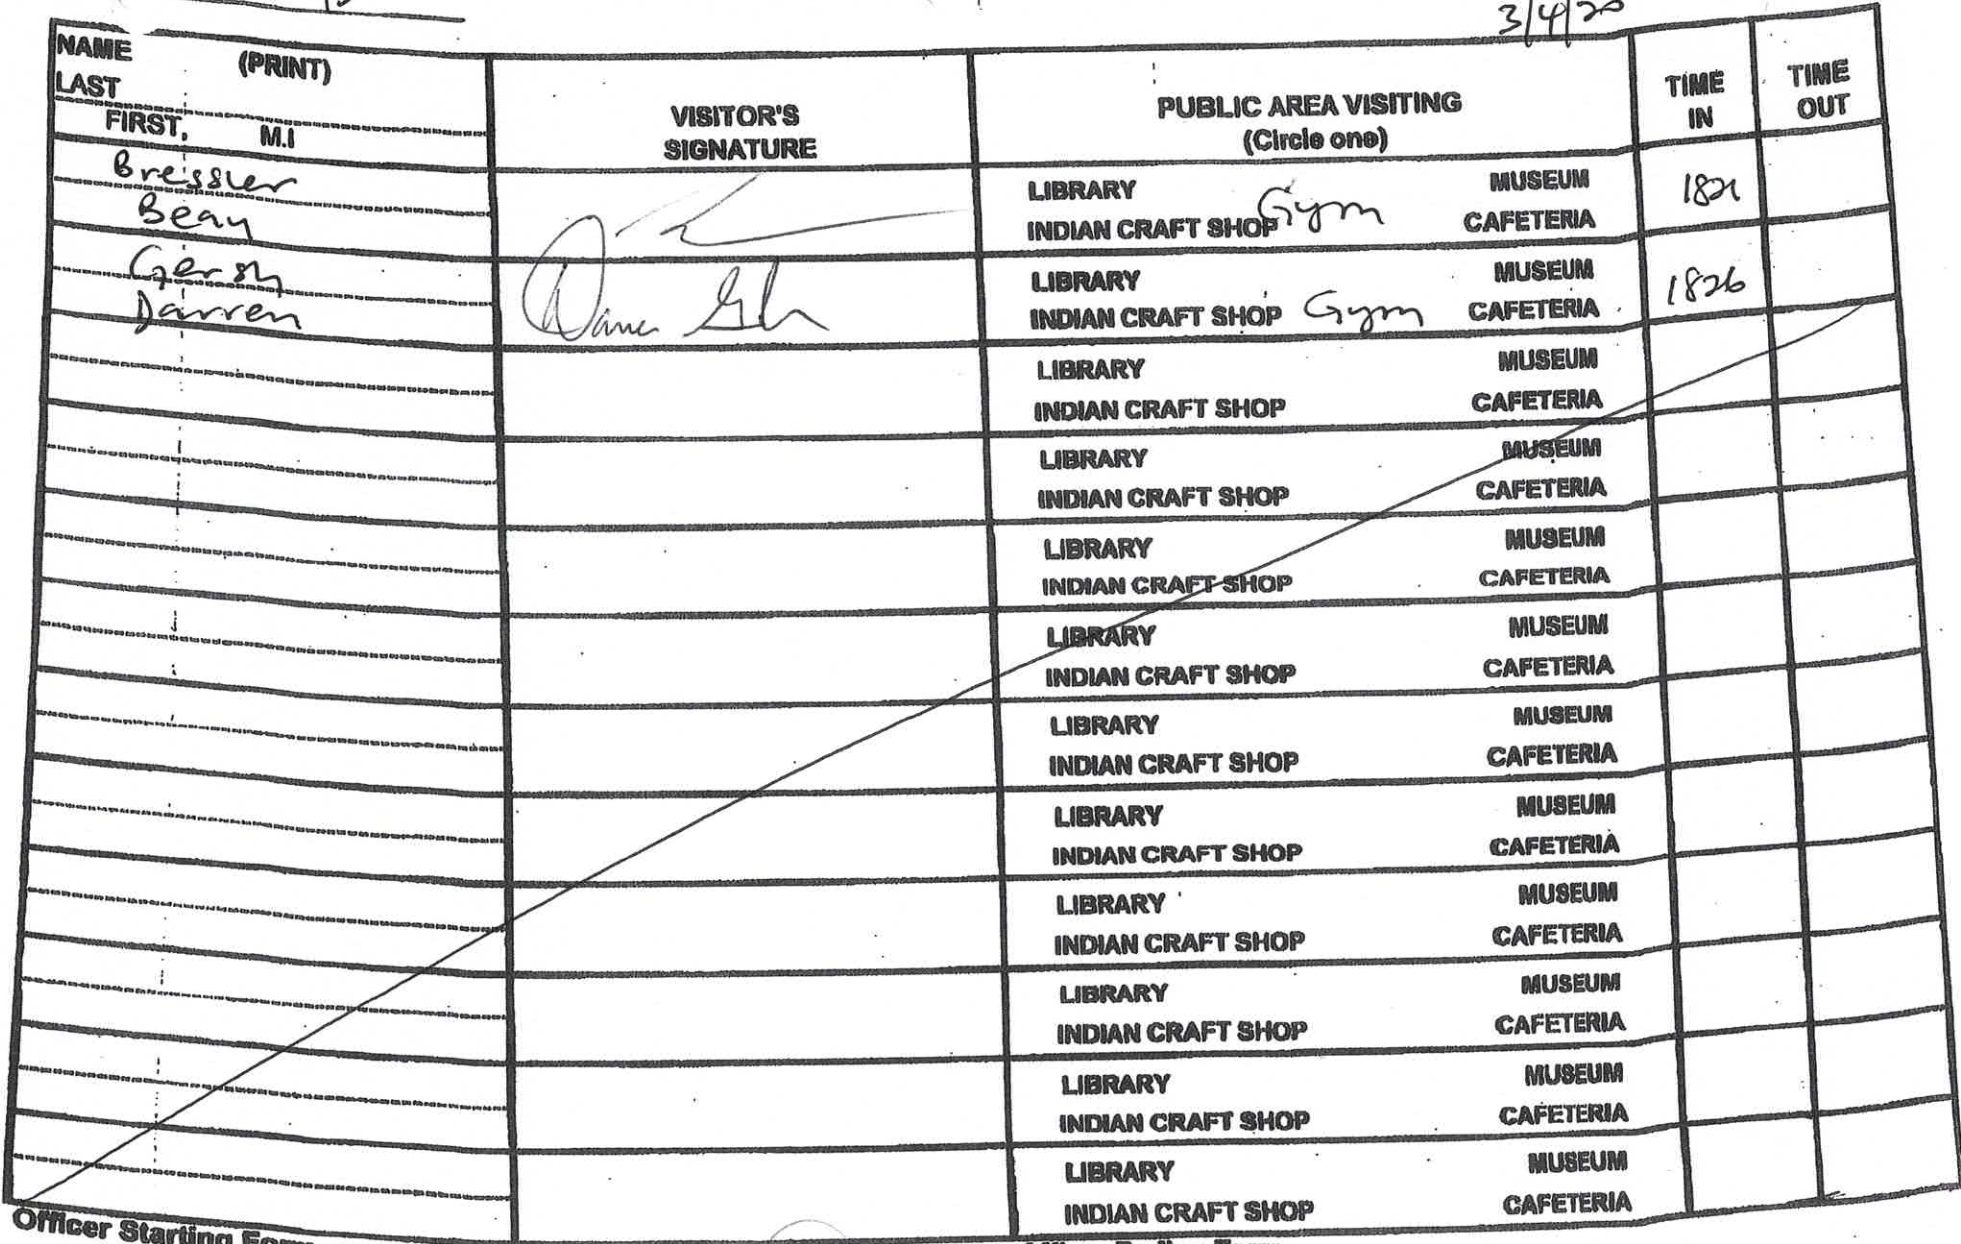 3/4/20
NAME (PRINT)
LAST
FIRST, M.I
VISITOR'S
SIGNATURE
PUBLIC AREA VISITING
(Circle one)
TIME
IN
TIME
OUT
Bressler
Bean
LIBRARY MUSEUM
INDIAN CRAFT SHOP Gym CAFETERIA
1821
Gersh
Darren
LIBRARY MUSEUM
INDIAN CRAFT SHOP Gym CAFETERIA
1826
LIBRARY MUSEUM
INDIAN CRAFT SHOP CAFETERIA
LIBRARY MUSEUM
INDIAN CRAFT SHOP CAFETERIA
LIBRARY MUSEUM
INDIAN CRAFT SHOP CAFETERIA
LIBRARY MUSEUM
INDIAN CRAFT SHOP CAFETERIA
LIBRARY MUSEUM
INDIAN CRAFT SHOP CAFETERIA
LIBRARY MUSEUM
INDIAN CRAFT SHOP CAFETERIA
LIBRARY MUSEUM
INDIAN CRAFT SHOP CAFETERIA
LIBRARY MUSEUM
INDIAN CRAFT SHOP CAFETERIA
LIBRARY MUSEUM
INDIAN CRAFT SHOP CAFETERIA
LIBRARY MUSEUM
INDIAN CRAFT SHOP CAFETERIA
Officer Starting Form